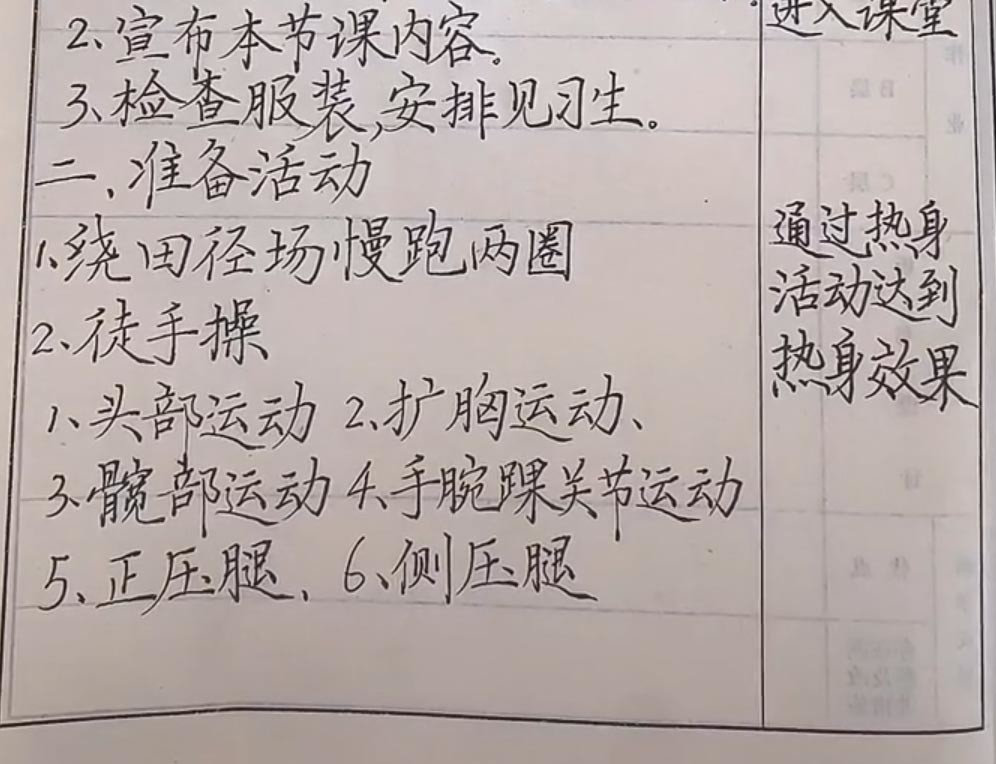 2、宣布本节课内容。
3、检查服装,安排见习生。
二、准备活动
1、绕田径场慢跑两圈
2、徒手操
1、头部运动 2、扩胸运动、
3、髋部运动 4、手腕踝关节运动
5、正压腿、6、侧压腿
进入课堂
通过热身
活动达到
热身效果